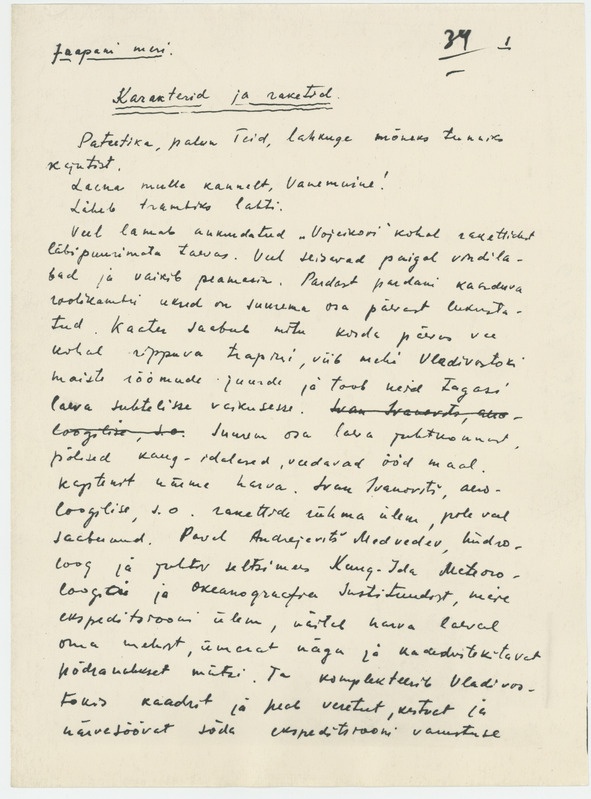 Jaapani meri. 34 1
Karakterid ja raketid.
Pateetika, palun Teid, lahkuge mõneks tunniks
kajutist.
Laena mulle kannelt, Vanemuine!
Läheb trambiks lahti.
Veel lamab ankrudatud „Vojeikovi" kohal rakettidest
läbipuurimata taevas. Veel seisavad paigal vindila-
bad ja vaikib peamasin. Pardast pardani kaarduva
roolikambri uksed on suurema osa päevast lukusta-
tud. Kaater saabub mitu korda päevas vee
kohal rippuva trapini, viib mehi Vladivostoki
maiste rõõmude juurde ja toob neid tagasi
laeva suhtelisse vaikusesse. Ivan Ivanovitš, aero-
loogilise, s.o. Suurem osa laeva juhtkonnast,
põlised kaug-idalased, veedavad ööd maal.
Kaptenit näeme harva. Ivan Ivanovitš, aero-
loogilise, s.o. rakettide rühma ülem, pole veel
saabunud. Pavel Andrejevitš Medvedev, hüdro-
loog ja juhtiv seltsimees Kaug-Ida Meteoro-
loogia ja Okeanograafia Instituudist, meie
ekspeditsiooni ülem, näitab harva laeval
oma mehist, ümarat nägu ja kadedustekitavat
põdranahkset mütsi. Ta komplekteerib Vladivos-
tokis kaadrit ja peab veretut, kestvat ja
närvesöövat sõda ekspeditsiooni varustuse